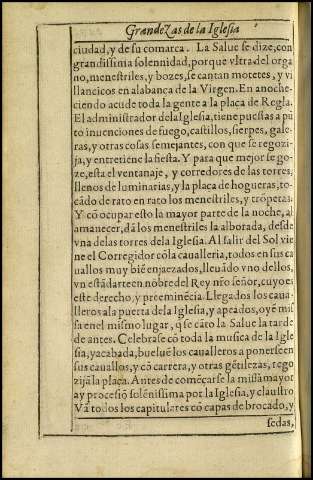 Grandezas de la Iglesia
ciudad, y de su comarca. La Salue se dize, con
grandissima solennidad, porque vltra del orga
no, menestriles, y bozes, se cantan motetes, y vi
llancicos en alabança de la Virgen. En anoche-
ciendo acude toda la gente a la plaça de Regla.
El administrador dela Iglesia, tiene puestas a pũ
to inuenciones de fuego, castillos, sierpes, gale-
ras, y otras cosas semejantes, con que se regozi-
ja, y entretiene la fiesta. Y para que mejor se go-
ze, esta el ventanaje, y corredores de las torres,
llenos de luminarias, y la plaça de hogueras, to-
cãdo de rato en rato los menestriles, y trõpetas.
Y cõ ocupar esto la mayor parte de la noche, al
amanecer, dã los menestriles la alborada, desde
vna de las torres dela Iglesia. Al salir del Sol vie
ne el Corregidor cõla caualleria, todos en sus ca
uallos muy biẽ enjaezados, lleuãdo vno dellos,
vn estãdarte en nõbre del Rey nr̃o señor, cuyo es
este derecho, y preeminẽcia. Llegados los caua-
lleros a la puerta dela Iglesia, y apeados, oyẽ mis
sa en el mismo lugar, q̃ se cãto la Salue la tarde
de antes. Celebrase cõ toda la musica de la Igle
sia, y acabada, bueluẽ los caualleros a ponerse en
sus cauallos, y cõ carrera, y otras gẽtilezas, rego
zijã la plaça. Antes de comẽcarse la missa mayor
ay procesiõ solẽnissima por la Iglesia, y claustro
Vã todos los capitulares cõ capas de brocado, y
sedas,